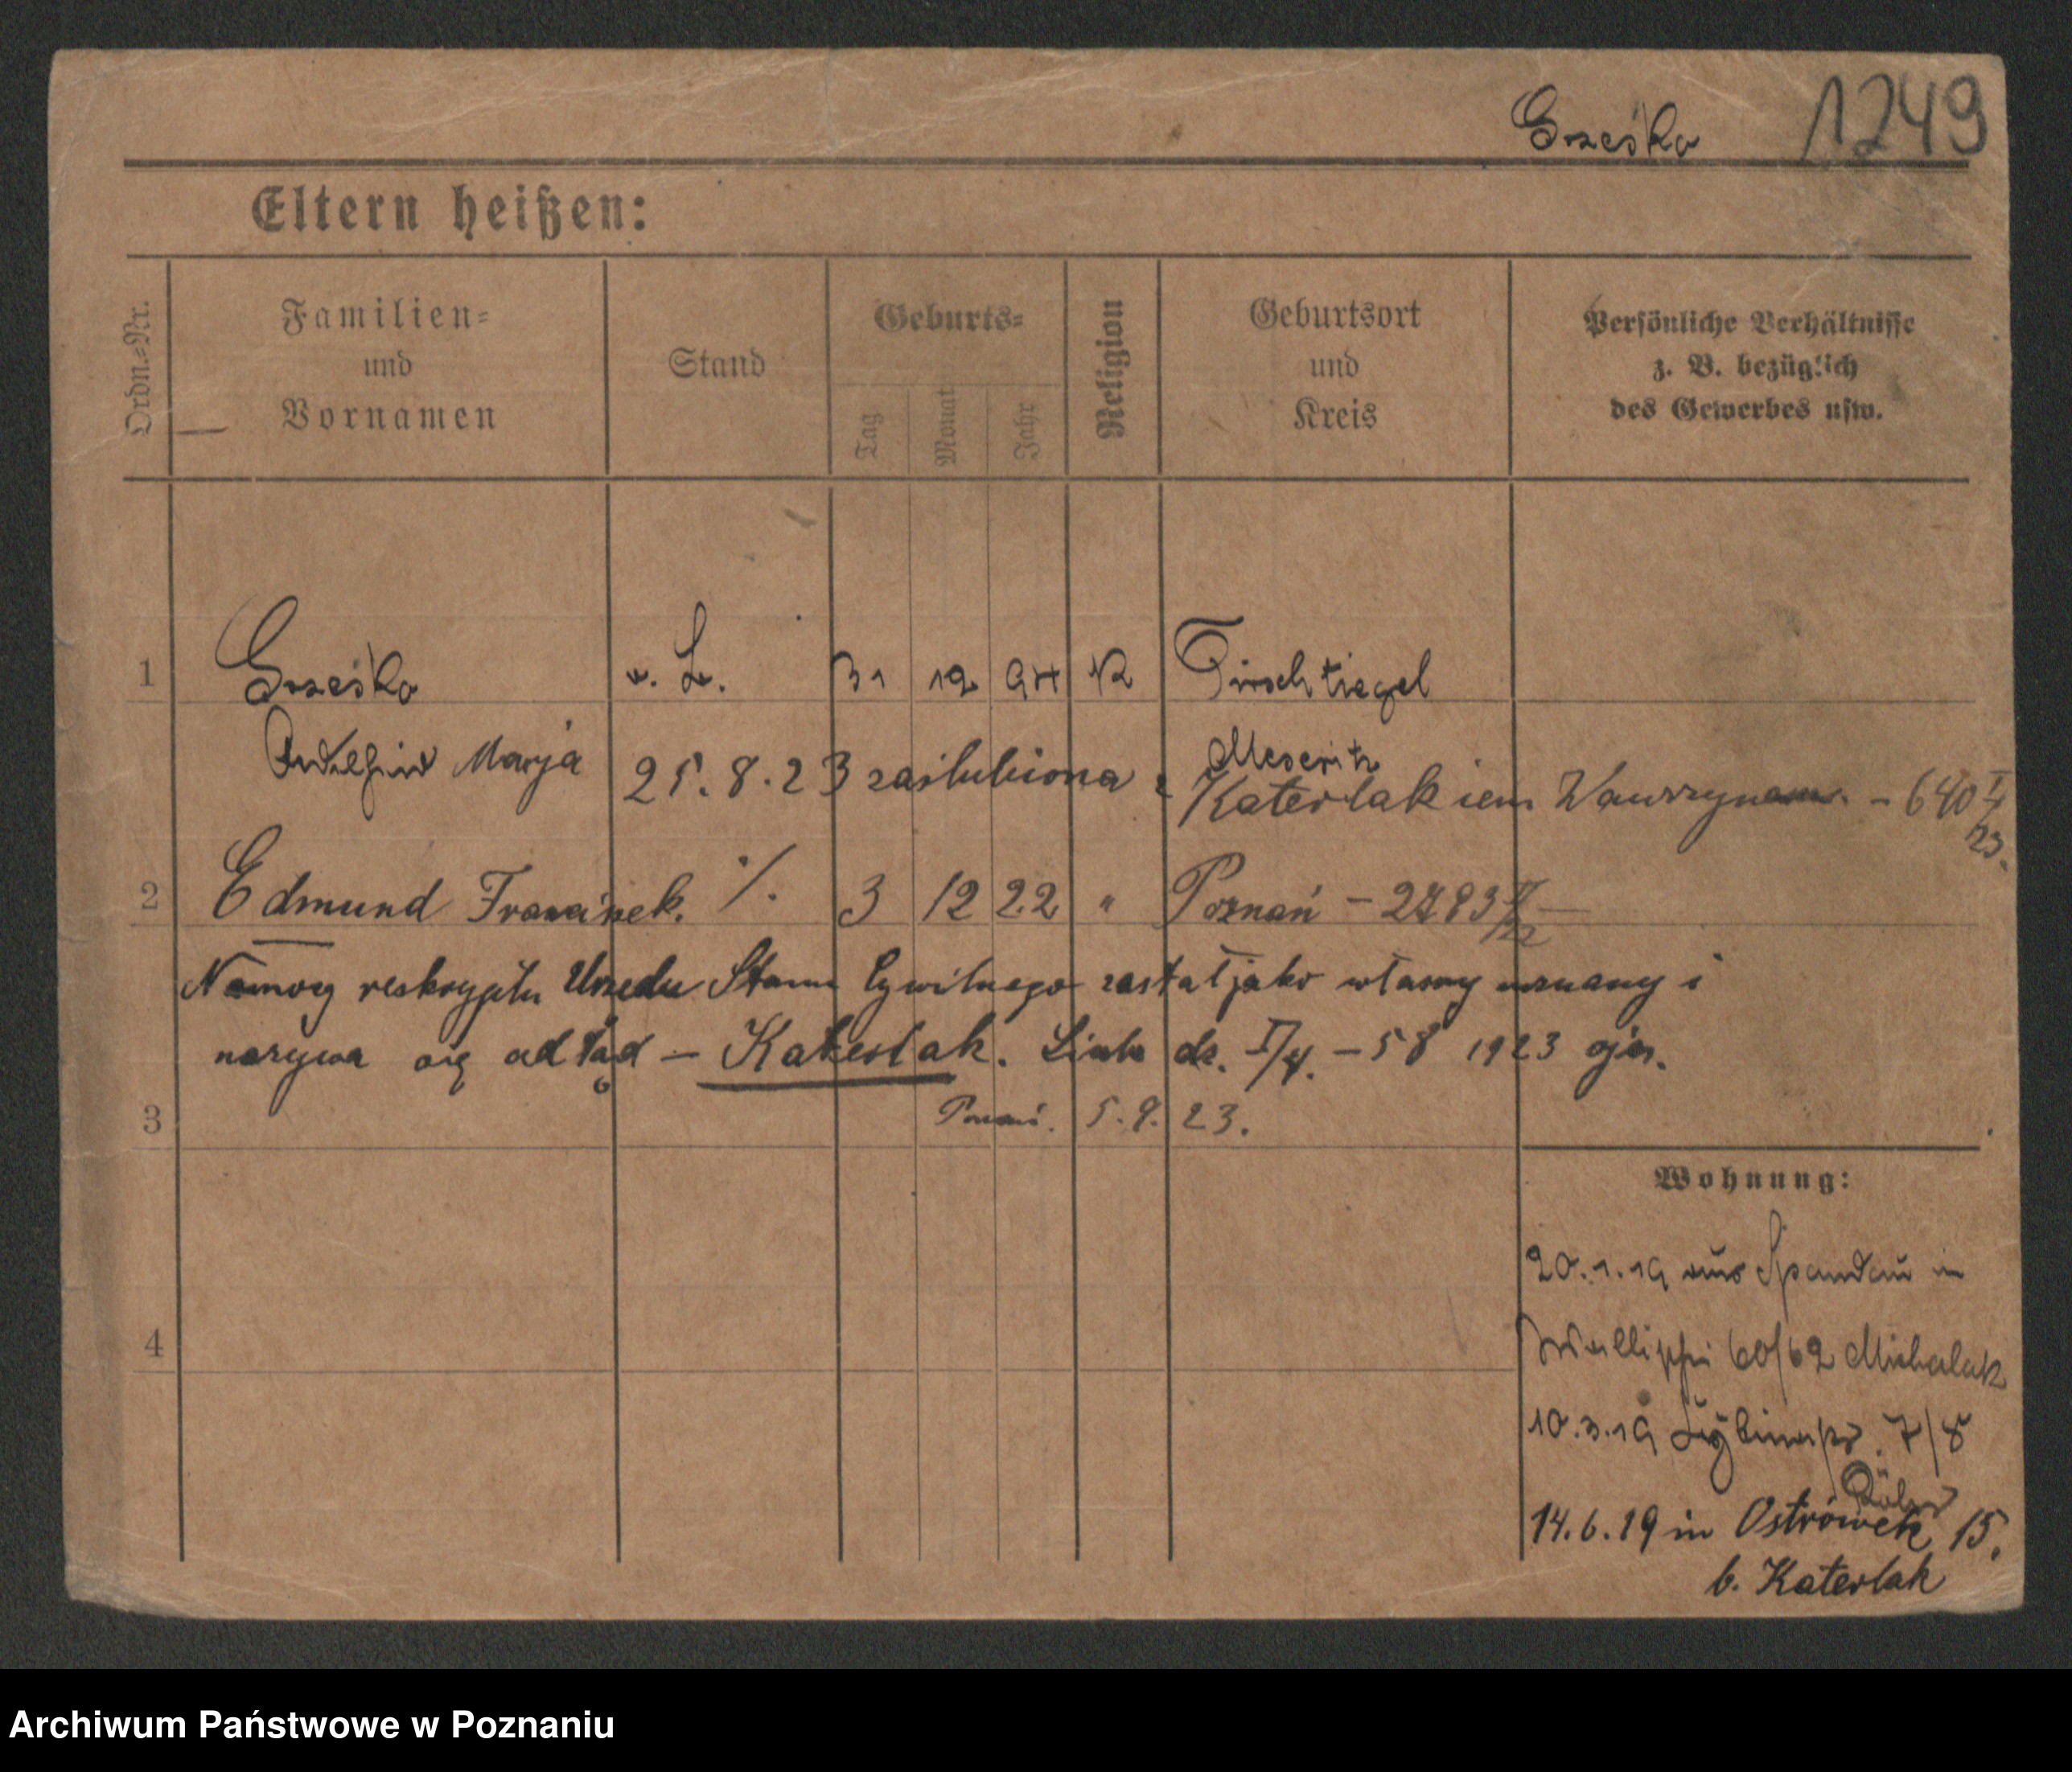 Grześka 1249
Eltern heißen:
Ordn.=Nr.
Familien=
und
Vornamen
Stand
Geburts=
Tag
Monat
Jahr
Religion
Geburtsort
und
Kreis
Persönliche Verhältnisse
z. B. bezüglich
des Gewerbes usw.
1 Grześka 31 12 94 K Tirschtiegel
Marja Meseritz
25.8.23 zaślubiona z Katerlakiem Wawrzynem - 640 I/4 23.
2 Edmund Franciszek ./. 3 12 22 " Poznań - 2793
Na mocy reskryptu Urzędu Stanu Cywilnego został jako własny uznany i
nazywa się odtąd - Katerlak. 58 1923
3 Poznań. 5.9.23.
Wohnung:
20.1.19 aus Spandau in
4 Wallischei 60/62 Michalak
10.3.19 7/8
14.6.19 in Ostrówek 15.
b. Katerlak
Archiwum Państwowe w Poznaniu